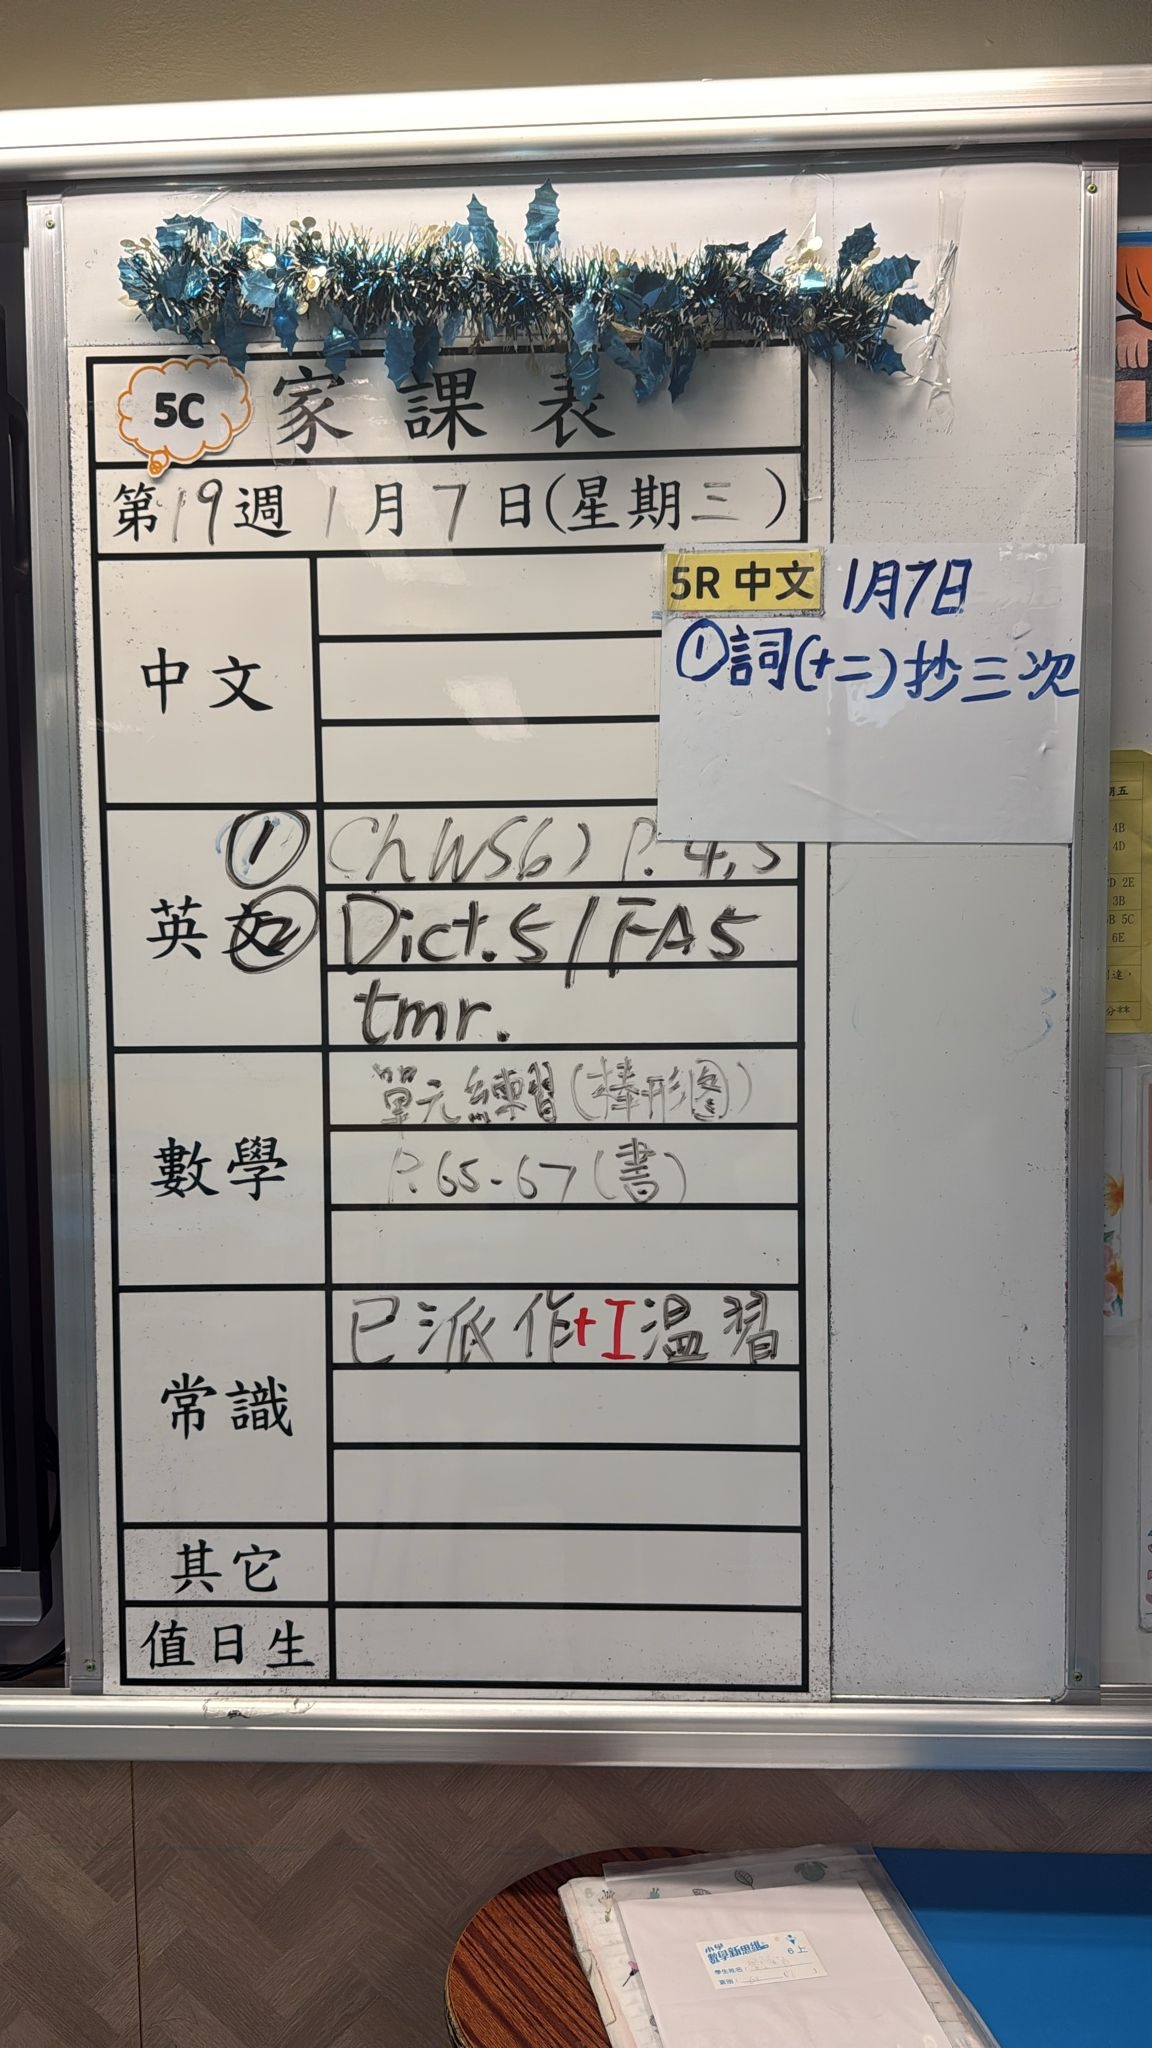 5C 家課表
第19週 1月7日(星期三)
中文
5R 中文 1月7日
①詞(十二)抄三次
英文
① Ch WS(6) P. 4, 5
② Dict. 5 / FA5
tmr.
數學
單元練習(棒形圖)
P. 65-67(書)
常識
已派作+I溫習
其它
值日生
小學
數學新思維
6上
學生姓名:
班別:
期五
4B
4D
2D 2E
3B
5B 5C
6E